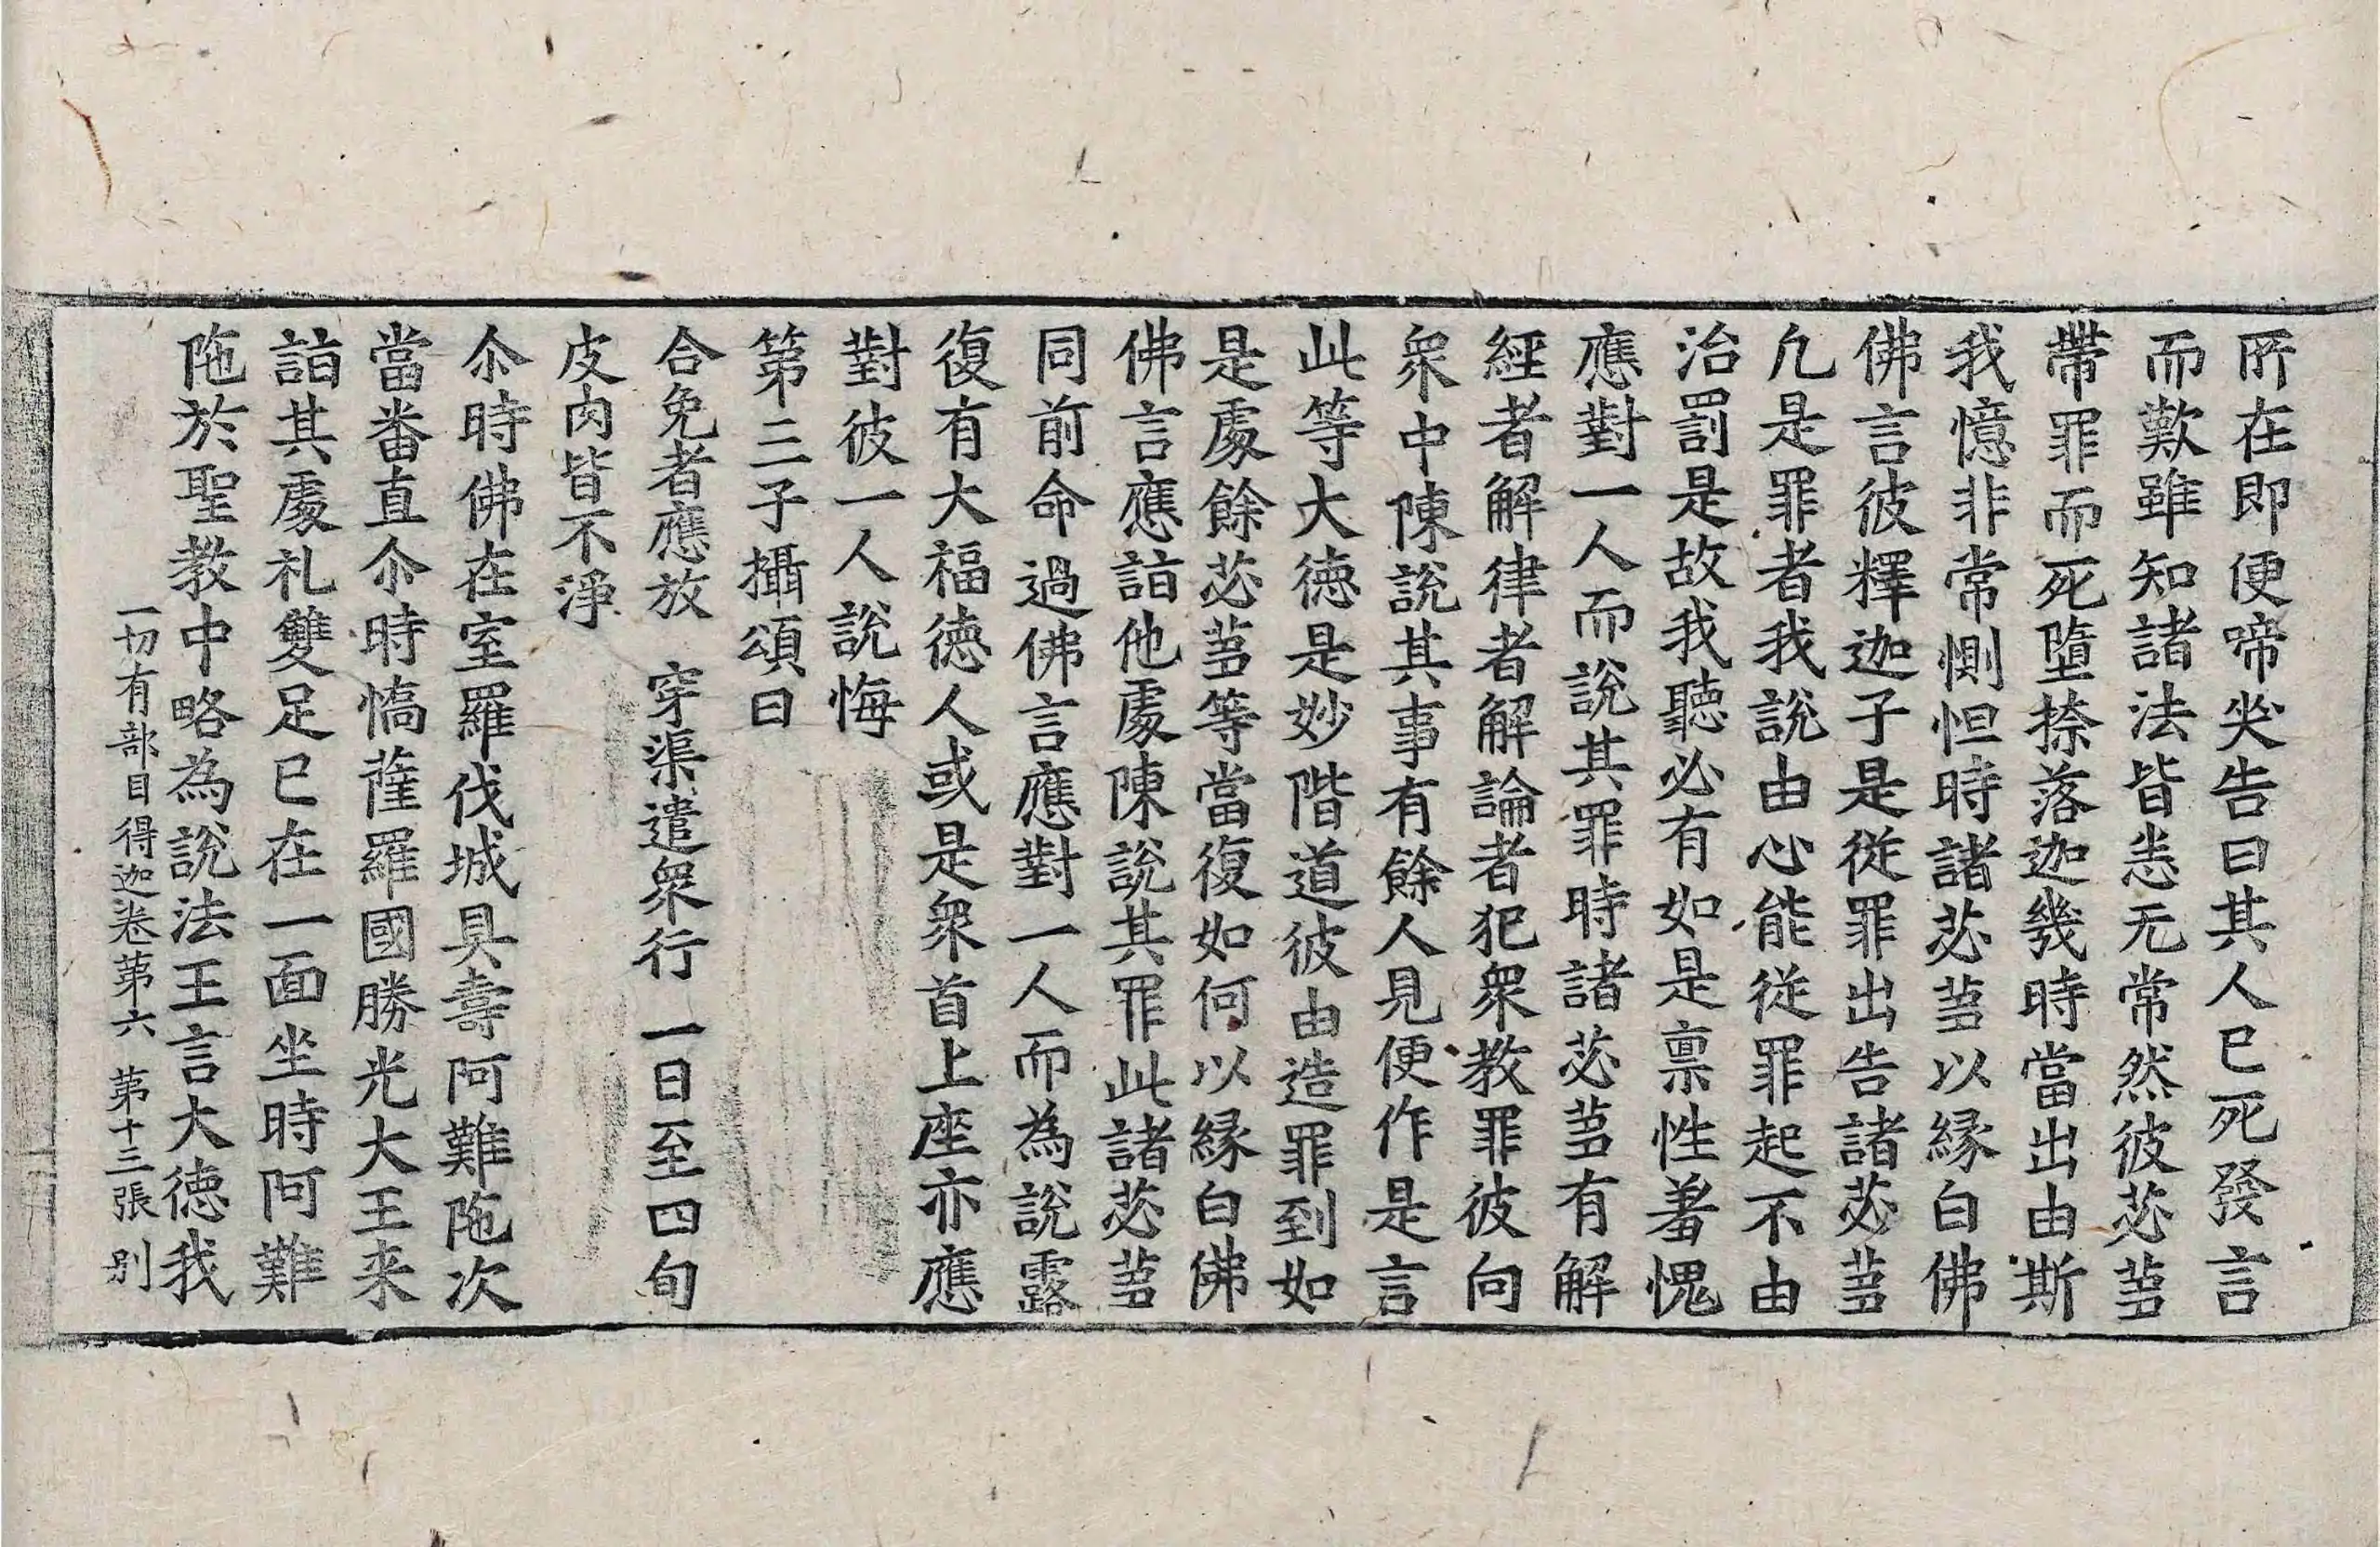 所在即便啼哭告曰其人已死發言
而歎雖知諸法皆悉无常然彼苾蒭
帶罪而死墮捺落迦幾時當出由斯
我憶非常惻怛時諸苾蒭以縁白佛
佛言彼釋迦子是從罪出告諸苾蒭
凡是罪者我說由心能從罪起不由
治罰是故我聽必有如是稟性羞愧
應對一人而說其罪時諸苾蒭有解
經者解律者解論者犯衆教罪彼向
衆中陳說其事有餘人見便作是言
此等大徳是妙階道彼由造罪到如
是處餘苾蒭等當復如何以縁白佛
佛言應詣他處陳說其罪此諸苾蒭
同前命過佛言應對一人而為說露
復有大福徳人或是衆首上座亦應
對彼一人說悔
第三子攝頌曰
合免者應放　穿渠遣衆行　一日至四旬
皮肉皆不淨
尒時佛在室羅伐城具壽阿難陁次
當番直尒時憍薩羅國勝光大王来
詣其處礼雙足已在一面坐時阿難
陁於聖教中略為說法王言大徳我
一切有部目得迦卷第六　第十三張　别